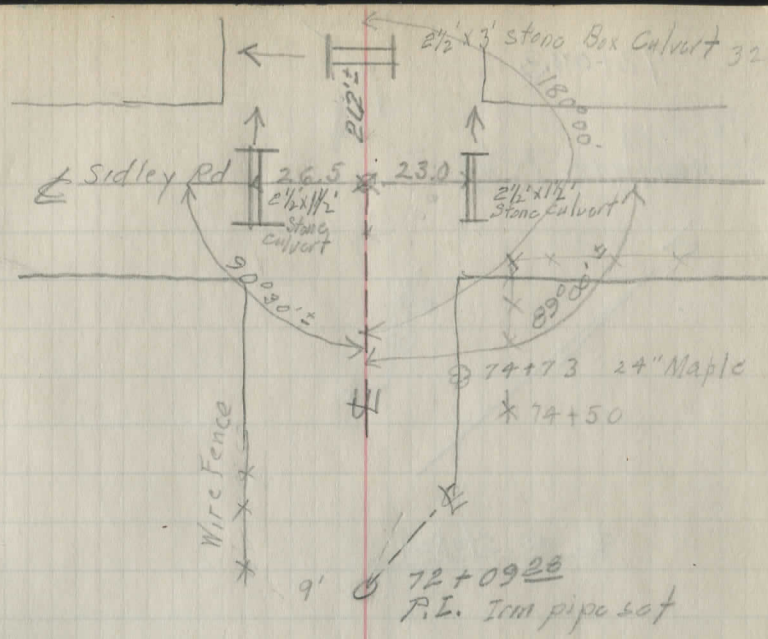 2½' x 3' Stone Box Culvert 32
180°00'
212'±
℄ Sidley Rd 26.5 23.0
2½' x 1½'
Stone
Culvert
2½' x 1½'
Stone Culvert
90°30'±
89°00'±
74+73 24" Maple
74+50
℄
Wire Fence
℄
9'
72+09 28
P.I. Iron pipe set